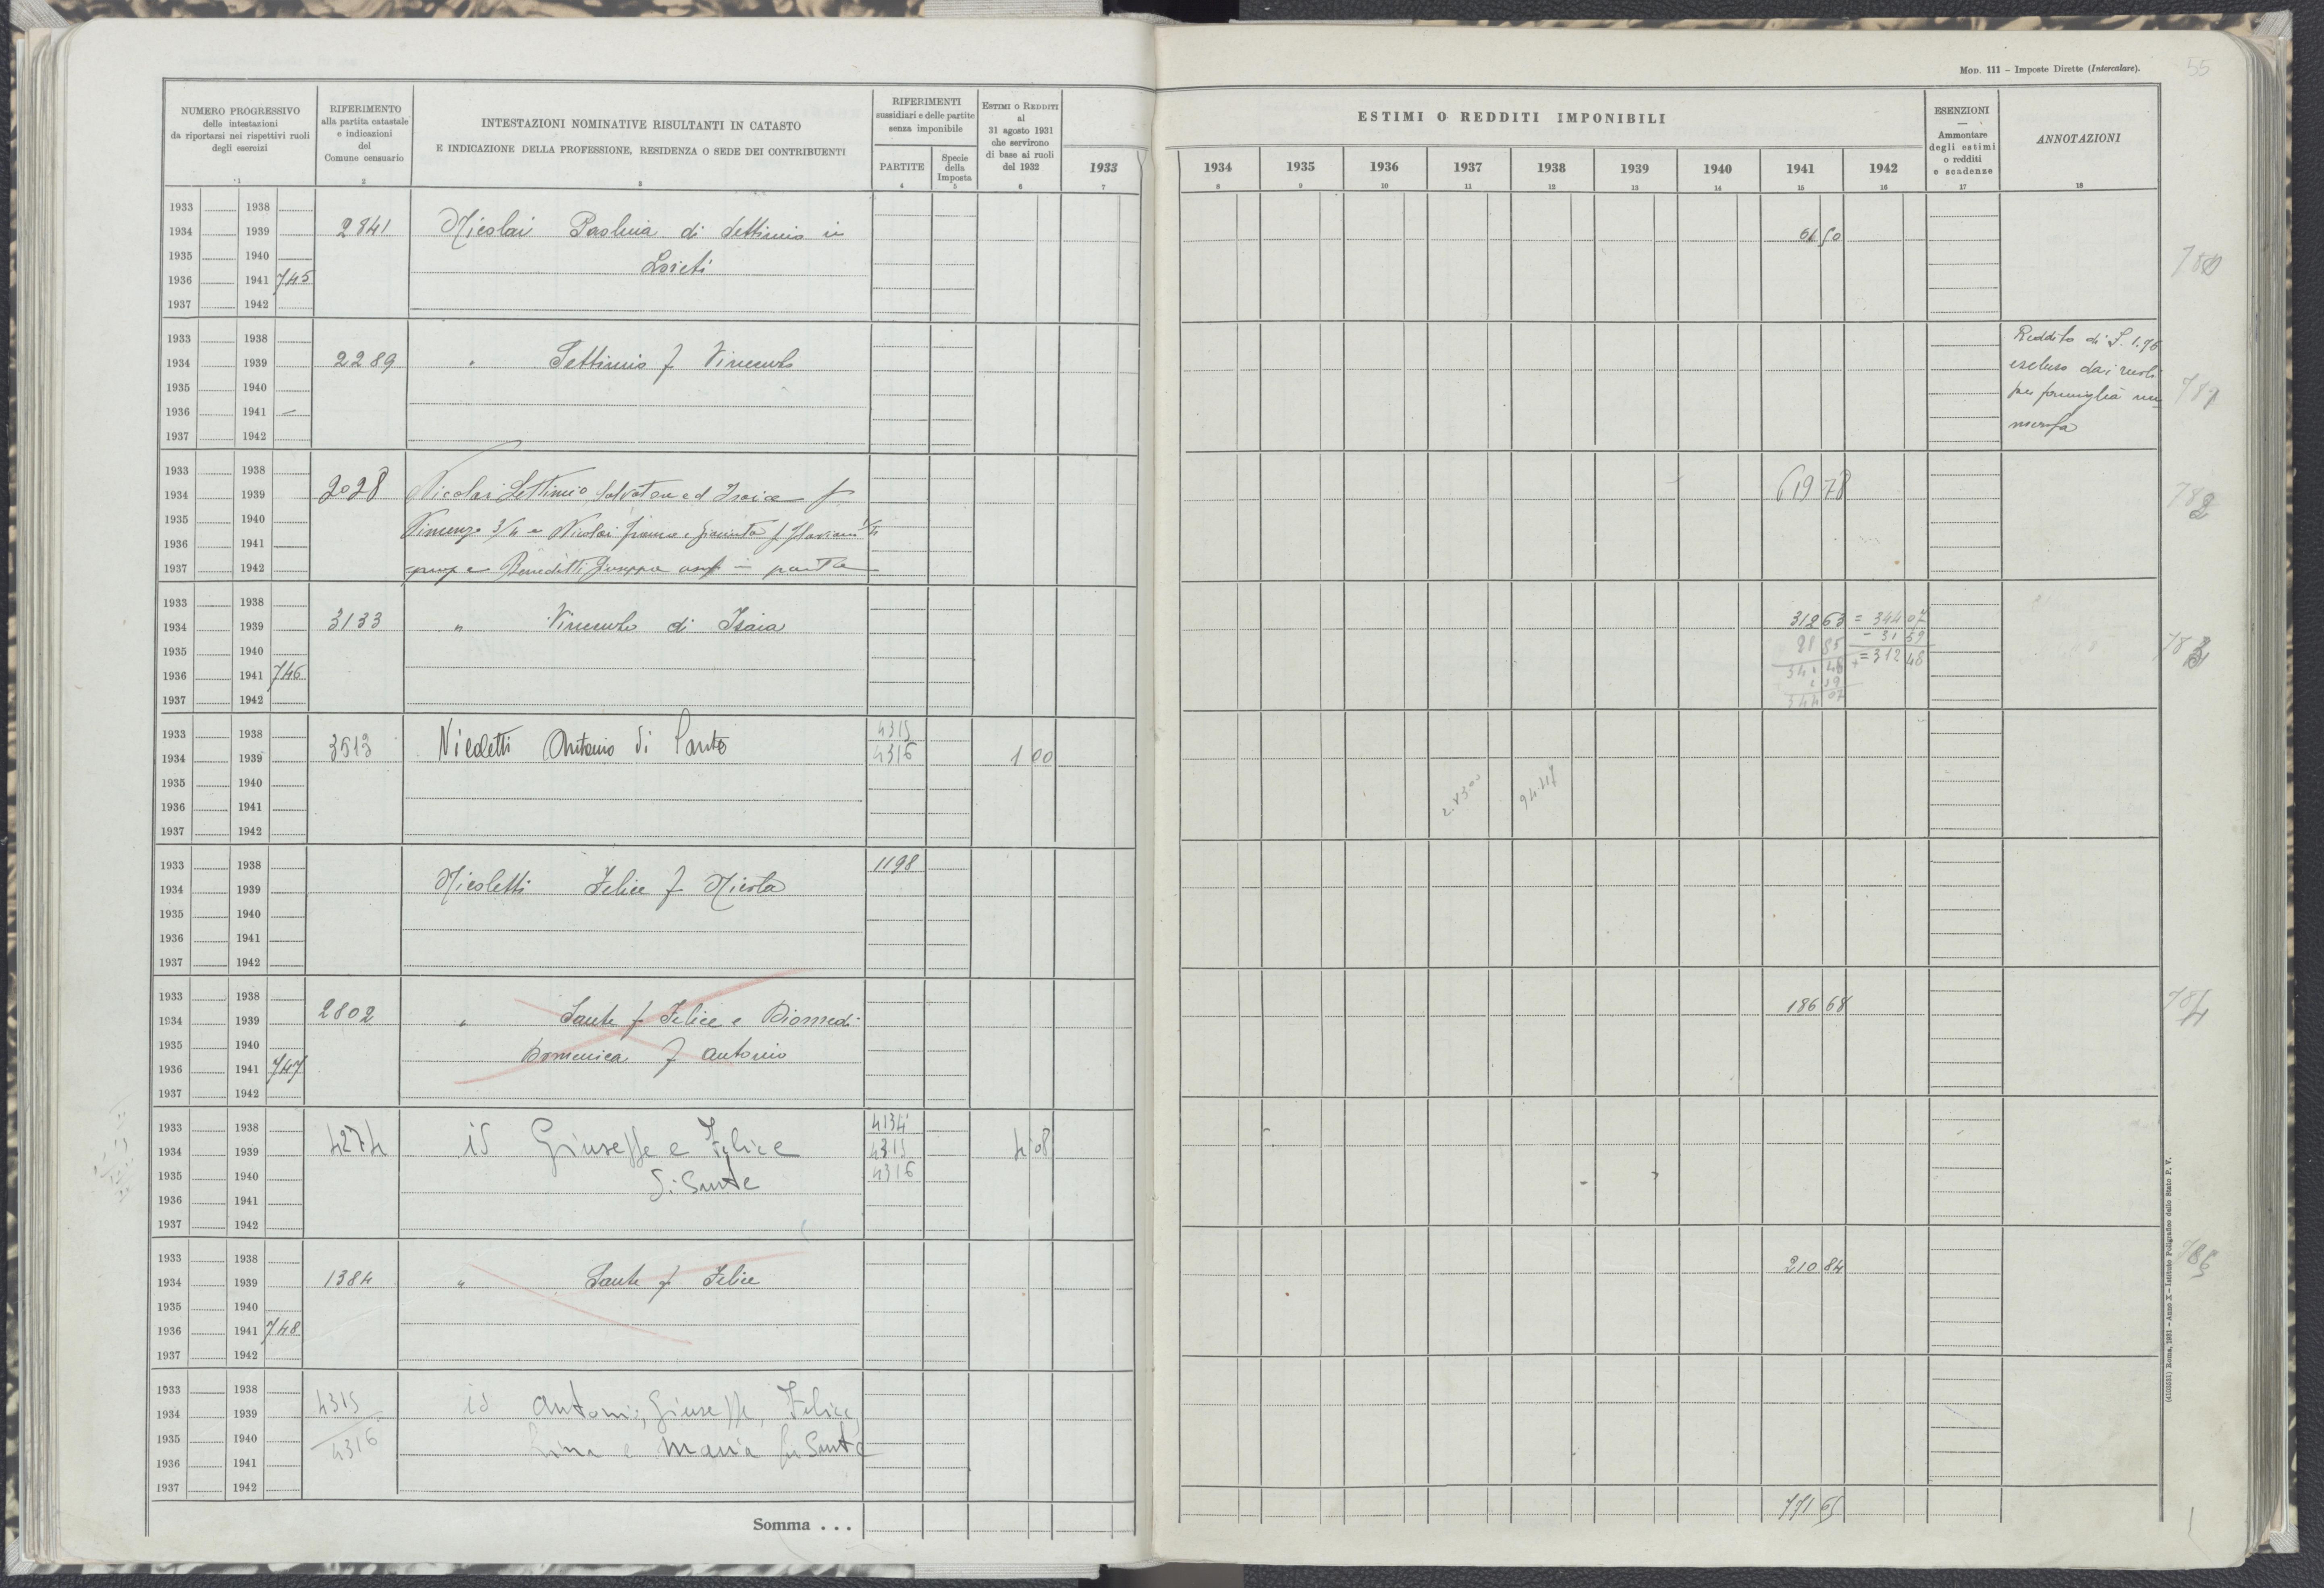 MOD. 111 – Imposte Dirette (Intercalare).
55
NUMERO PROGRESSIVO
delle intestazioni
da riportarsi nei rispettivi ruoli
degli esercizi
RIFERIMENTO
alla partita catastale
e indicazioni
del
Comune censuario
INTESTAZIONI NOMINATIVE RISULTANTI IN CATASTO
E INDICAZIONE DELLA PROFESSIONE, RESIDENZA O SEDE DEI CONTRIBUENTI
RIFERIMENTI
sussidiari e delle partite
senza imponibile
PARTITE
Specie
della
Imposta
ESTIMI O REDDITI
al
31 agosto 1931
che servirono
di base ai ruoli
del 1932
ESTIMI O REDDITI IMPONIBILI
1933 1934 1935 1936 1937 1938 1939 1940 1941 1942
ESENZIONI
—
Ammontare
degli estimi
o redditi
e scadenze
ANNOTAZIONI
1 2 3 4 5 6 7 8 9 10 11 12 13 14 15 16 17 18
1933 1938
1934 1939 2841 Nicolai Paolina di Settimio in 61 50
1935 1940 Loreti
1936 1941 745
1937 1942
1933 1938 Reddito di L. 1.76
1934 1939 2289 " Settimio f Vincenzo escluso dai ruoli
1935 1940 per famiglia nu
1936 1941 – merosa
1937 1942
1933 1938
1934 1939 2028 Nicolai Settimio Salvatore ed Isaia f 619 78
1935 1940 Vincenzo 3/4 e Nicolai
1936 1941
1937 1942 prop e Benedetti Giuseppa usuf in parte
782
1933 1938
1934 1939 3133 " Vincenzo di Isaia 312 63 = 344 07
1935 1940 – 31 59
1936 1941 746 = 312 48
1937 1942 344 07
783
1933 1938 4315
1934 1939 3513 Nicoletti Antonio di Sante 4316 1 00
1935 1940
1936 1941
1937 1942
1933 1938 1198
1934 1939 Nicoletti Felice f Nicola
1935 1940
1936 1941
1937 1942
1933 1938
1934 1939 2802 " Sante f Felice e Diomedi 186 68
1935 1940 Domenica f Antonio
1936 1941 747
1937 1942
784
1933 1938 4134
1934 1939 4274 id Giuseppe e Felice 4315 4 08
1935 1940 di Sante 4316
1936 1941
1937 1942
1933 1938
1934 1939 1384 " Sante f Felice 210 84
1935 1940
1936 1941 748
1937 1942
1933 1938
1934 1939 4315 id Antonio, Giuseppe, Felice,
1935 1940 4316 e Maria fu Sante
1936 1941
1937 1942
Somma . . . 771 65
(4103531) Roma, 1931 – Anno X – Istituto Poligrafico dello Stato P. V.